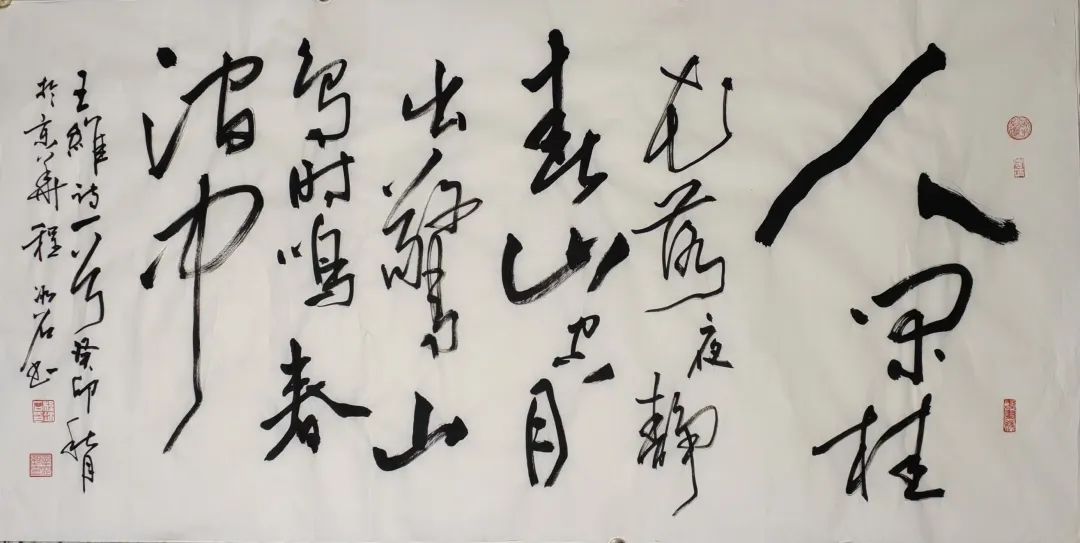 人闲桂
花落夜静
春山空月
出惊山
鸟时鸣春
涧中
王维诗一首癸卯秋月
于京华程冰石书